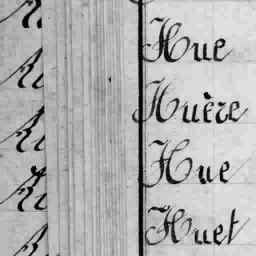 Hue
Huère
Hue
Huet